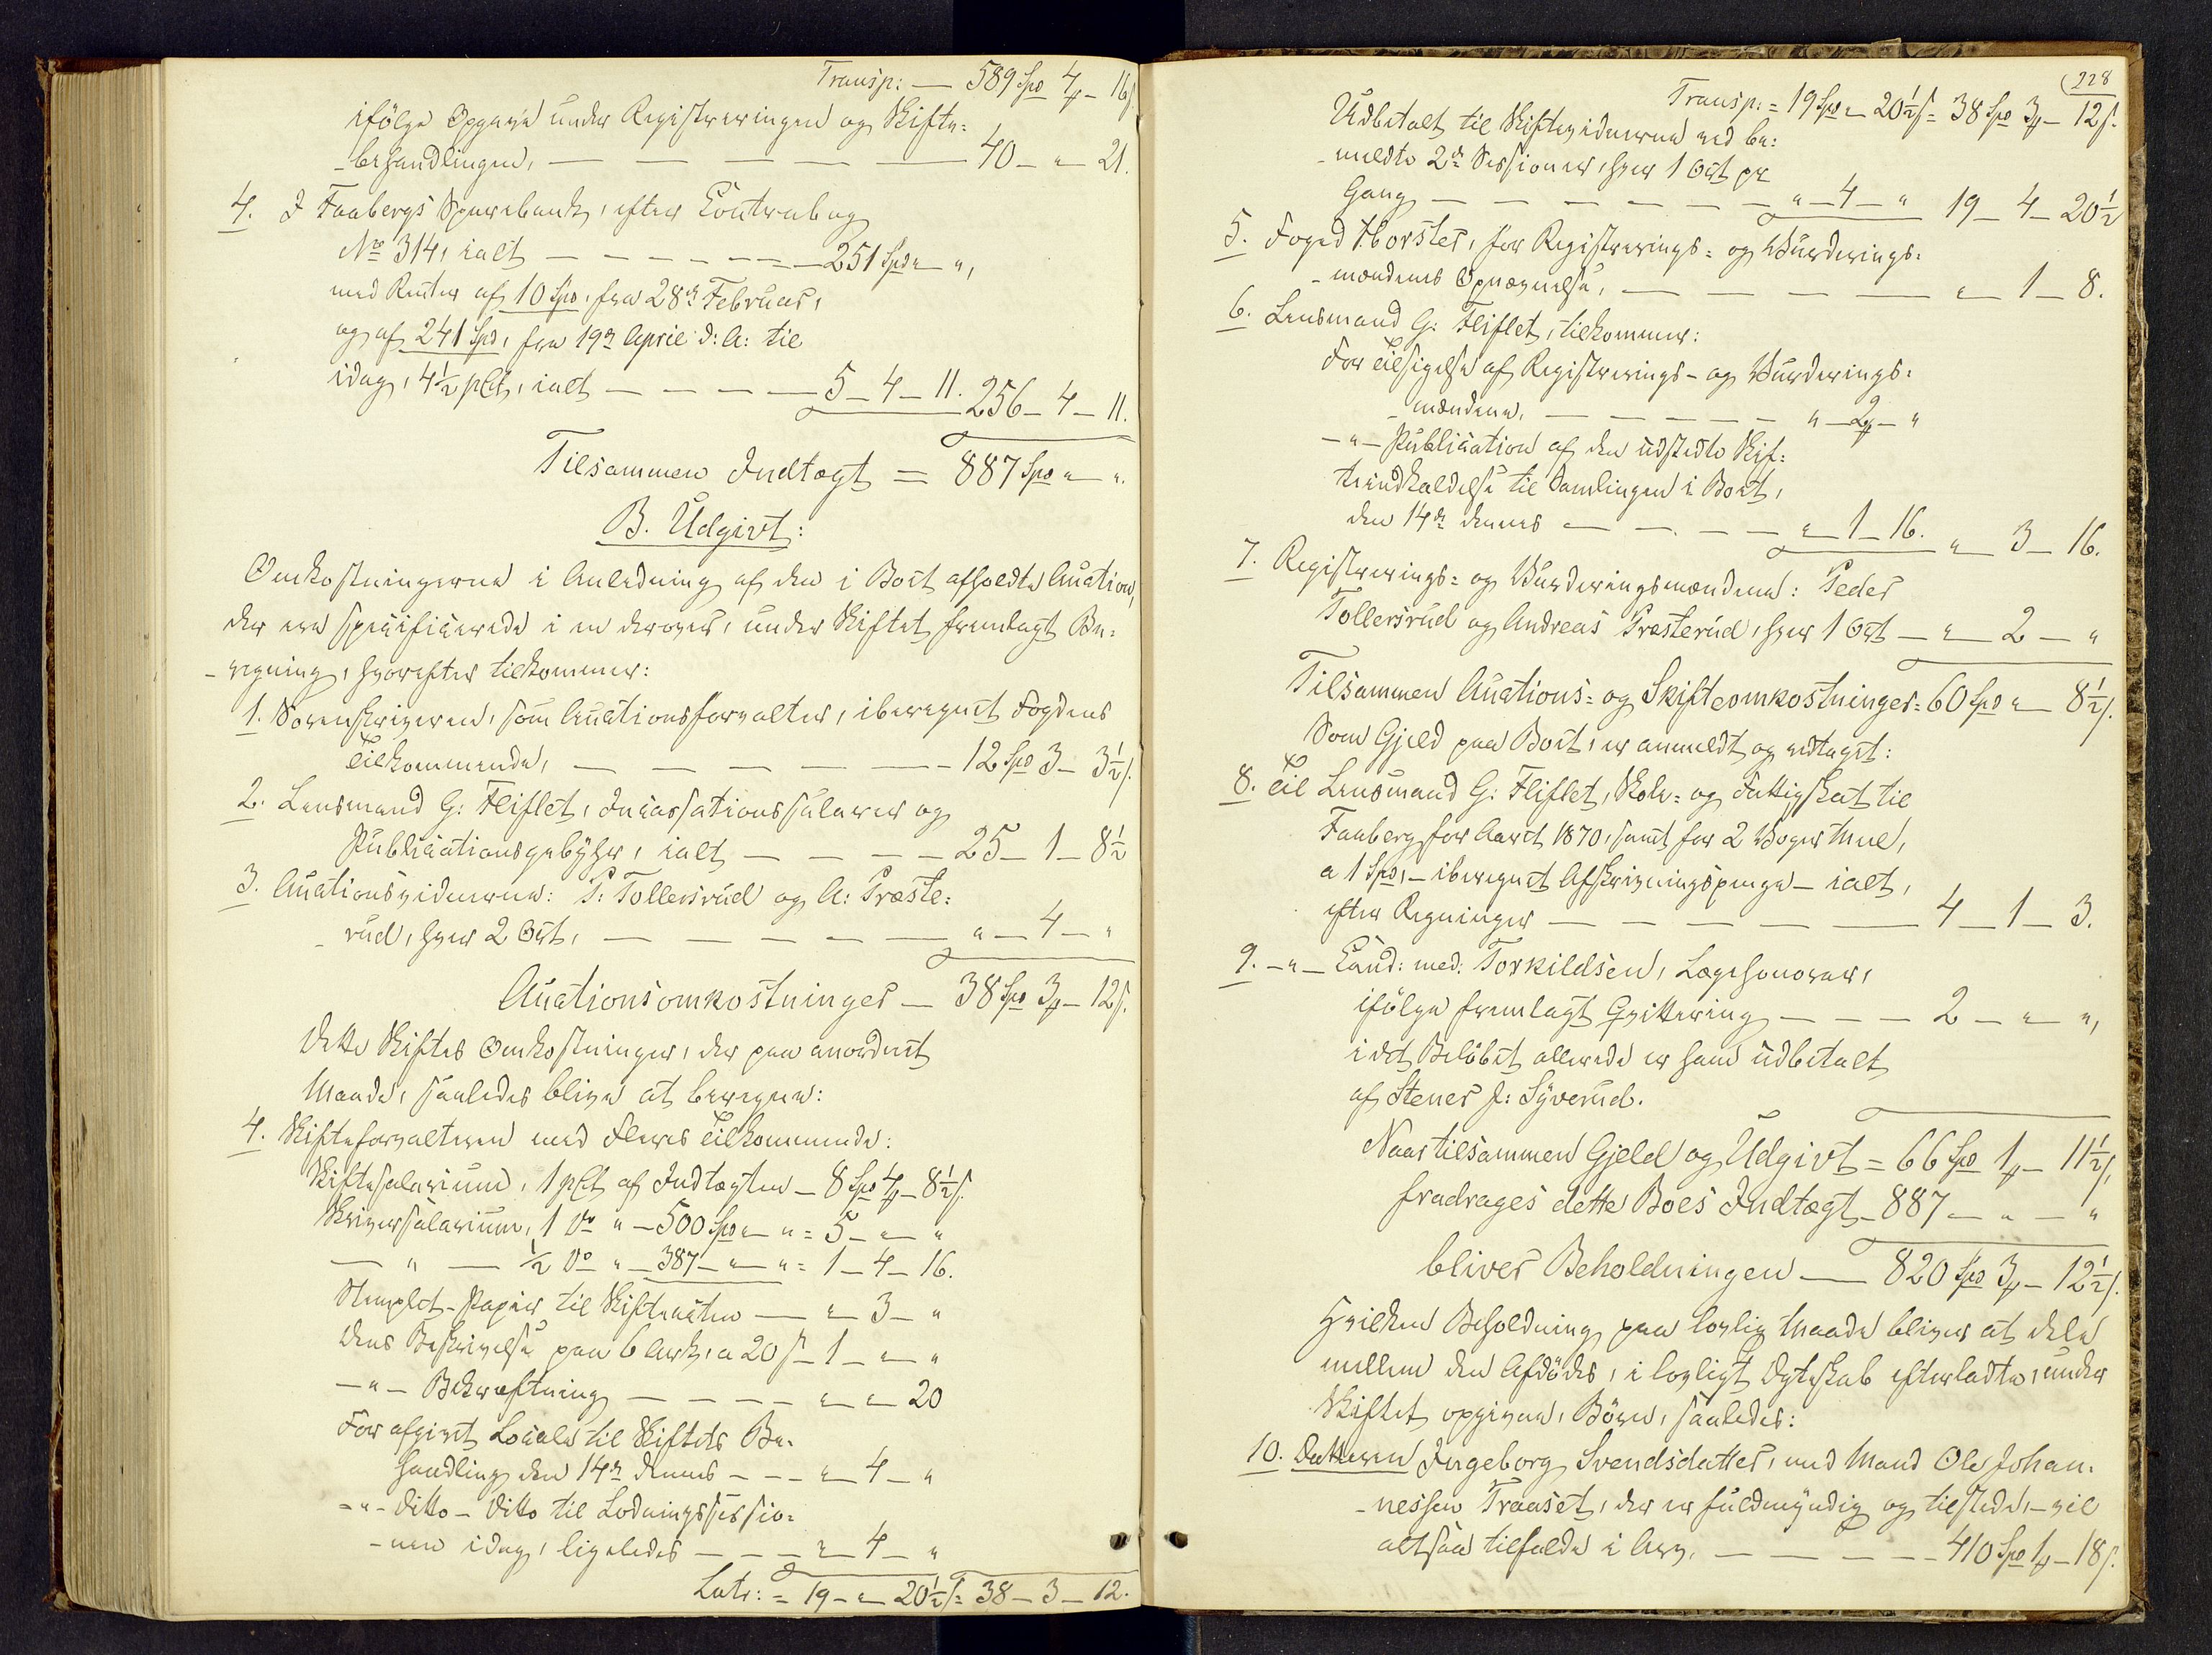 Transp: — 589 Spd 4 – 16 s.
ifölge Opgave under Registreringen og Skifte-
-behandlingen, — — — — 40 – " – 21.
4. I Faabergs Sparebank, efter Contrabog
No 314, ialt — — — — — — 251 Spd " – ",
med Renter af 10 Spd. fra 28de Februar,
og af 241 Spd, fra 19de April d: A: til
idag, 4½ pCt, ialt — — — — 5 – 4 – 11. 256 – 4 – 11.
Tilsammen Indtægt = 887 Spd " – ".
B. Udgivt:
Omkostningerne i Anledning af den i Boet afholdte Auction,
der ere specificerede i en derover, under Skiftet fremlagt Be-
-regning, hvorefter tilkommer:
1. Sorenskriveren, som Auctionsforvalter, iberegnet Fogdens
Tilkommende, — — — — — 12 Spd 3 – 3½ s.
2. Lensmand G: Fliflet, Incassationssalarer og
Publicationsgebyhr, ialt — — — — 25 – 1 – 8½
3. Auctionsvidnerne: P: Tollersrud og A: Præste-
-rud, hver 2 Ort, — — — — — " – 4 – "
Auctionsomkostninger — 38 Spd 3 – 12 s.
Dette Skiftes Omkostninger, der paa anordnet
Maade, saaledes blive at beregne:
4. Skifteforvalteren med Fleres Tilkommende:
Skiftesalarium, 1 pCt af Indtægten – 8 Spd 4 – 8½ s.
Skriversalarium, 1 do " – 500 Spd " – " = 5 – " – "
— " — ½ do " – 387 – " – " = 1 – 4 – 16.
Stemplet-Papir til Skifteacten — " – 3 – "
Dens Beskrivelse paa 6 Ark, a 20 s – 1 – " – "
— " — Bekræftning — — — — " – " – 20
For afgivet Locale til Skiftets Be-
handling den 14de dennes – – – " – 4 – "
– " – Ditto – Ditto til Lodningssessio-
-nen idag, ligeledes – – – " – 4 – "
Latr: = 19 – " – 20½ s = 38 – 3 – 12.
228
Transp: = 19 Spd " – 20½ s = 38 Spd 3 – 12 s.
Udbetalt til Skiftevidnerne ved be-
-meldte 2de Sessioner, hver 1 Ort pr
Gang — — — — — — " – 4 – " 19 – 4 – 20½
5. Foged Thorster, for Registrerings- og Vurderings-
-mændenes Opnævnelse, — — — — " – 1 – 8.
6. Lensmand G: Fliflet, tilkommer:
For Tilsigelse af Registrerings- og Vurderings-
-mændene, — — — — — " – 2 – "
– " – Publication af den udstedte Skif-
teindkaldelse til Samlingen i Boet,
den 14de dennes — — — — " – 1 – 16. " – 3 – 16.
7. Registrerings- og Vurderingsmændene: Peder
Tollersrud og Andreas Præsterud, hver 1 Ort – " – 2 – "
Tilsammen Auctions- og Skifteomkostninger = 60 Spd " – 8½ s.
Som Gjeld paa Boet, er anmeldt og vedtaget:
8. Til Lensmand G: Fliflet, Skole- og Fattigskat til
Faaberg for Aaret 1870, samt for 2 Voger Meel,
a 1 Spd, – iberegnet Afskrivningspenge – ialt,
efter Regninger — — — — — 4 – 1 – 3.
9. – " – Cand: med: Torkildsen, Lægehonorar,
ifölge fremlagt Qvittering — — — 2 – " – ",
idet Belöbet allerede er ham udbetalt
af Stener J: Syverud.
Naar tilsammen Gjeld og Udgivt = 66 Spd 1 – 11½ s,
fradrages dette Boes Indtægt – 887 – " – "
bliver Beholdningen — 820 Spd 3 – 12½ s.
Hvilken Beholdning paa lovlig Maade bliver at dele
mellem den Afdödes, i lovligt Ægteskab efterladte, under
Skiftet opgivne, Börn, saaledes:
10. Datteren Ingeborg Svendsdatter, med Mand Ole Johan-
-nessen Traaset, der er fuldmyndig og tilstede, – vil
altsaa tilfalde i Arv, — — — — — 410 Spd 1 – 18 s.